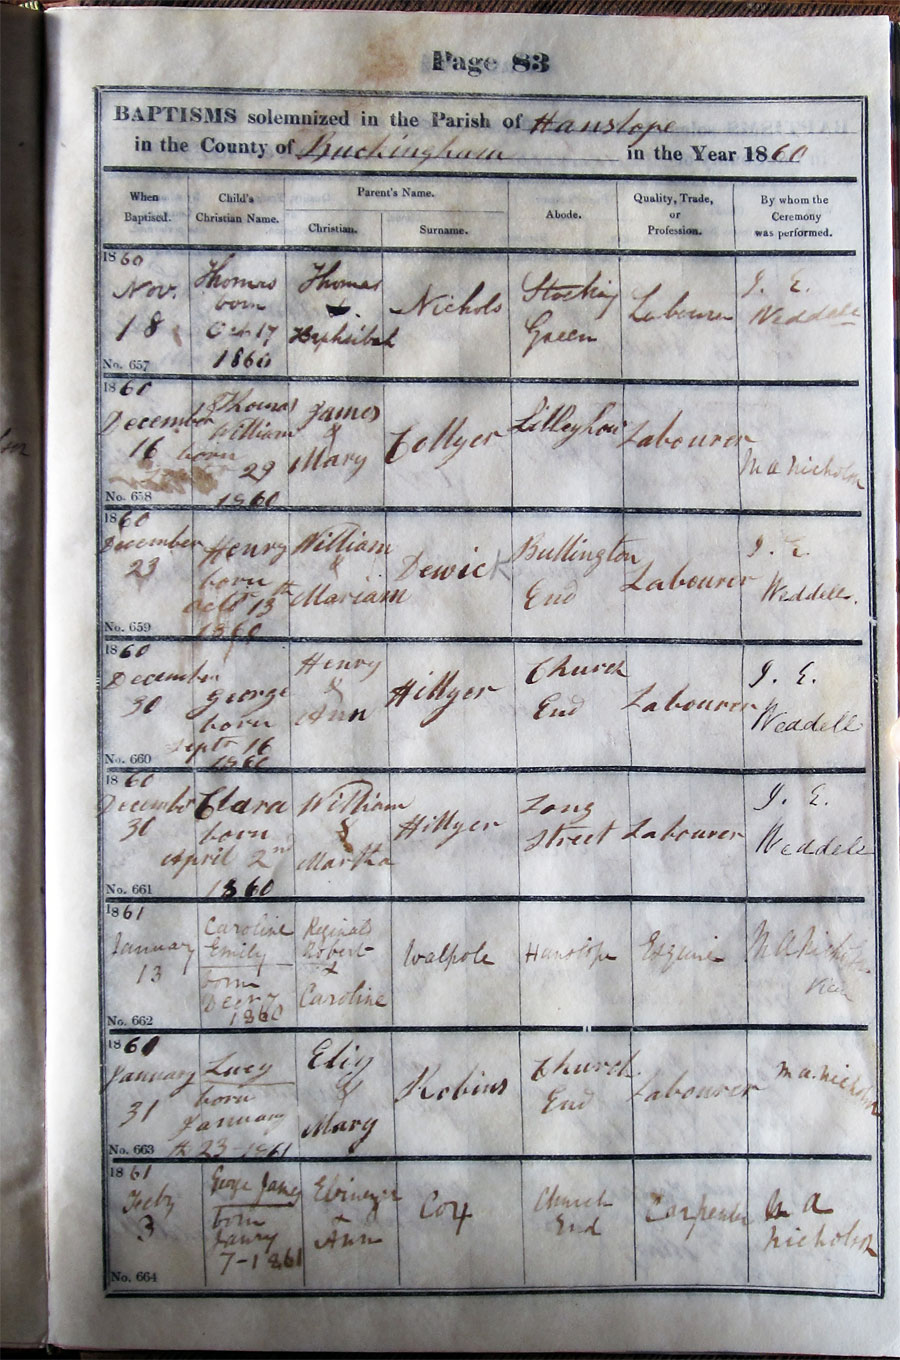 Page 83
BAPTISMS solemnized in the Parish of Hanslope
in the County of Buckingham in the Year 1860
When Baptised.
Child's Christian Name.
Parent's Name.
Christian.
Surname.
Abode.
Quality, Trade, or Profession.
By whom the Ceremony was performed.
1860
Nov.
18
No. 657
Thomas
born
Oct 17
1860
Thomas
&
Hephsibah
Nichols
Stocking
Green
Labourer
J. E.
Weddell
1860
December
16
No. 658
Thomas
William
born
29
1860
James
&
Mary
Collyer
Labourer
M A Nicholson
1860
December
23
No. 659
Henry
born
Octr 13th
1860
William
&
Mariam
Dewick
Bullington
End
Labourer
J. E.
Weddell.
1860
December
30
No. 660
George
born
Septr 16
1860
Henry
&
Ann
Hillyer
Church
End
Labourer
J. E.
Weddell
1860
December
30
No. 661
Clara
born
April 2nd
1860
William
&
Martha
Hillyer
Long
Street
Labourer
J. E.
Weddell
1861
January
13
No. 662
Caroline
Emily
born
Decr 7
1860
Reginald
Robert
&
Caroline
Walpole
Hanslope
Esquire
M A Nicholson
1860
January
31
No. 663
Lucy
born
January
23-1861
&
Mary
Robins
Church
End
Labourer
M A. Nicholson
1861
Feby
3
No. 664
George James
born
Janry
7-1861
Ebinezer
&
Ann
Cox
Church
End
Carpenter
M A
Nicholson